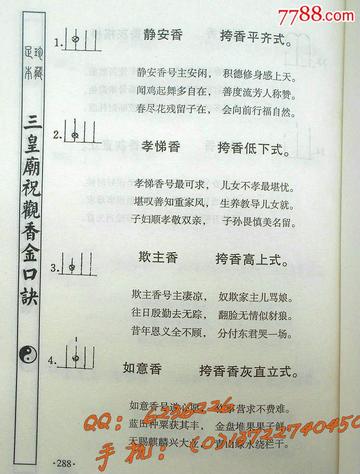 7788.com
珍藏足本
三皇廟祝觀香金口訣
1. 静安香 挎香平齐式。
静安香号主安闲， 积德修身感上天。
闻鸡起舞多自在， 善度流芳人称赞。
春尽花残留子在， 会向前行福自然。
2. 孝悌香 挎香低下式。
孝悌香号最可求， 儿女不孝最堪忧。
堪叹善知重家风， 生养教导儿女就。
子妇顺孝敬双亲， 子孙畏慎美名留。
3. 欺主香 挎香高上式。
欺主香号主凄凉， 奴欺家主儿骂娘。
往日殷勤去无踪， 翻脸无情似豺狼。
昔年恩义全不顾， 分付东君哭一场。
4. 如意香 挎香香灰直立式。
如意香号遂心愿， 营求不费难。
蓝田种粟获其丰， 金盘堆果果子鲜。
天赐麒麟兴大 绿水绕栏干。
·288·
QQ:
手机: